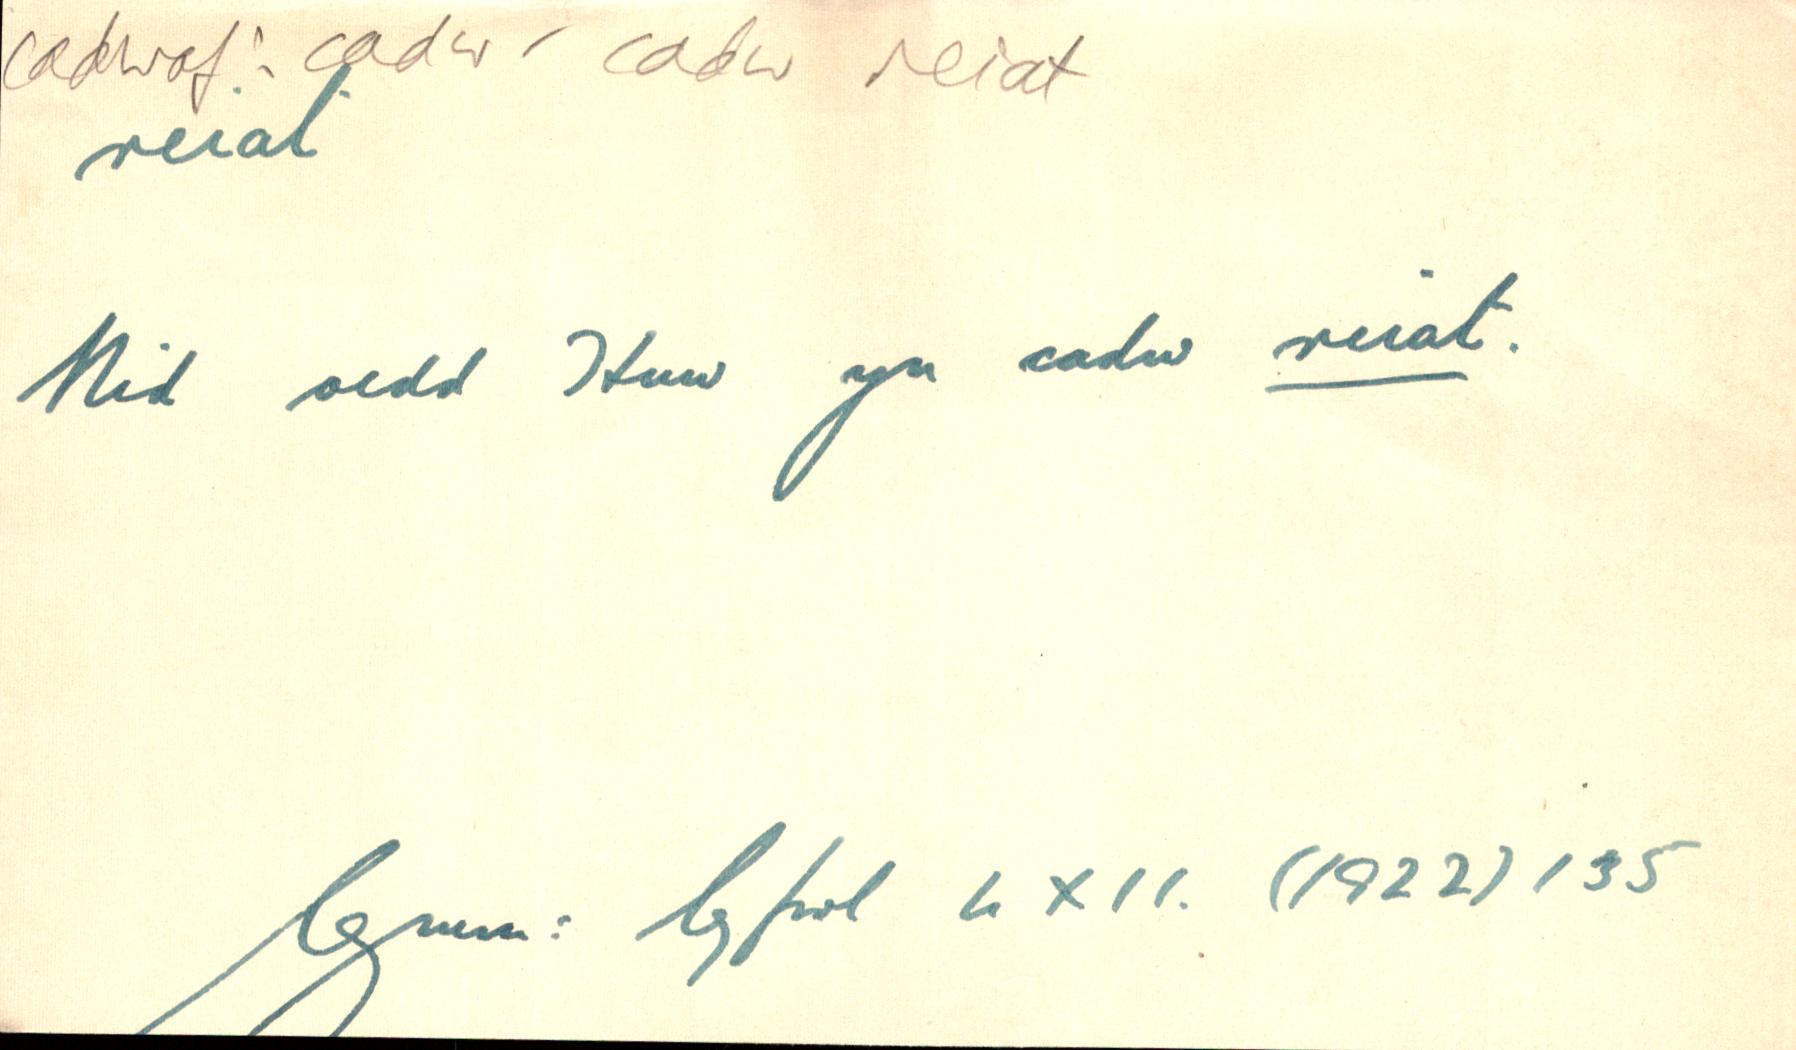 cadwaf: cadw - cadw reiat
reiat
Nid oedd Huw yn cadw reiat.
Cymru: Cyfrol LXII. (1922) 135